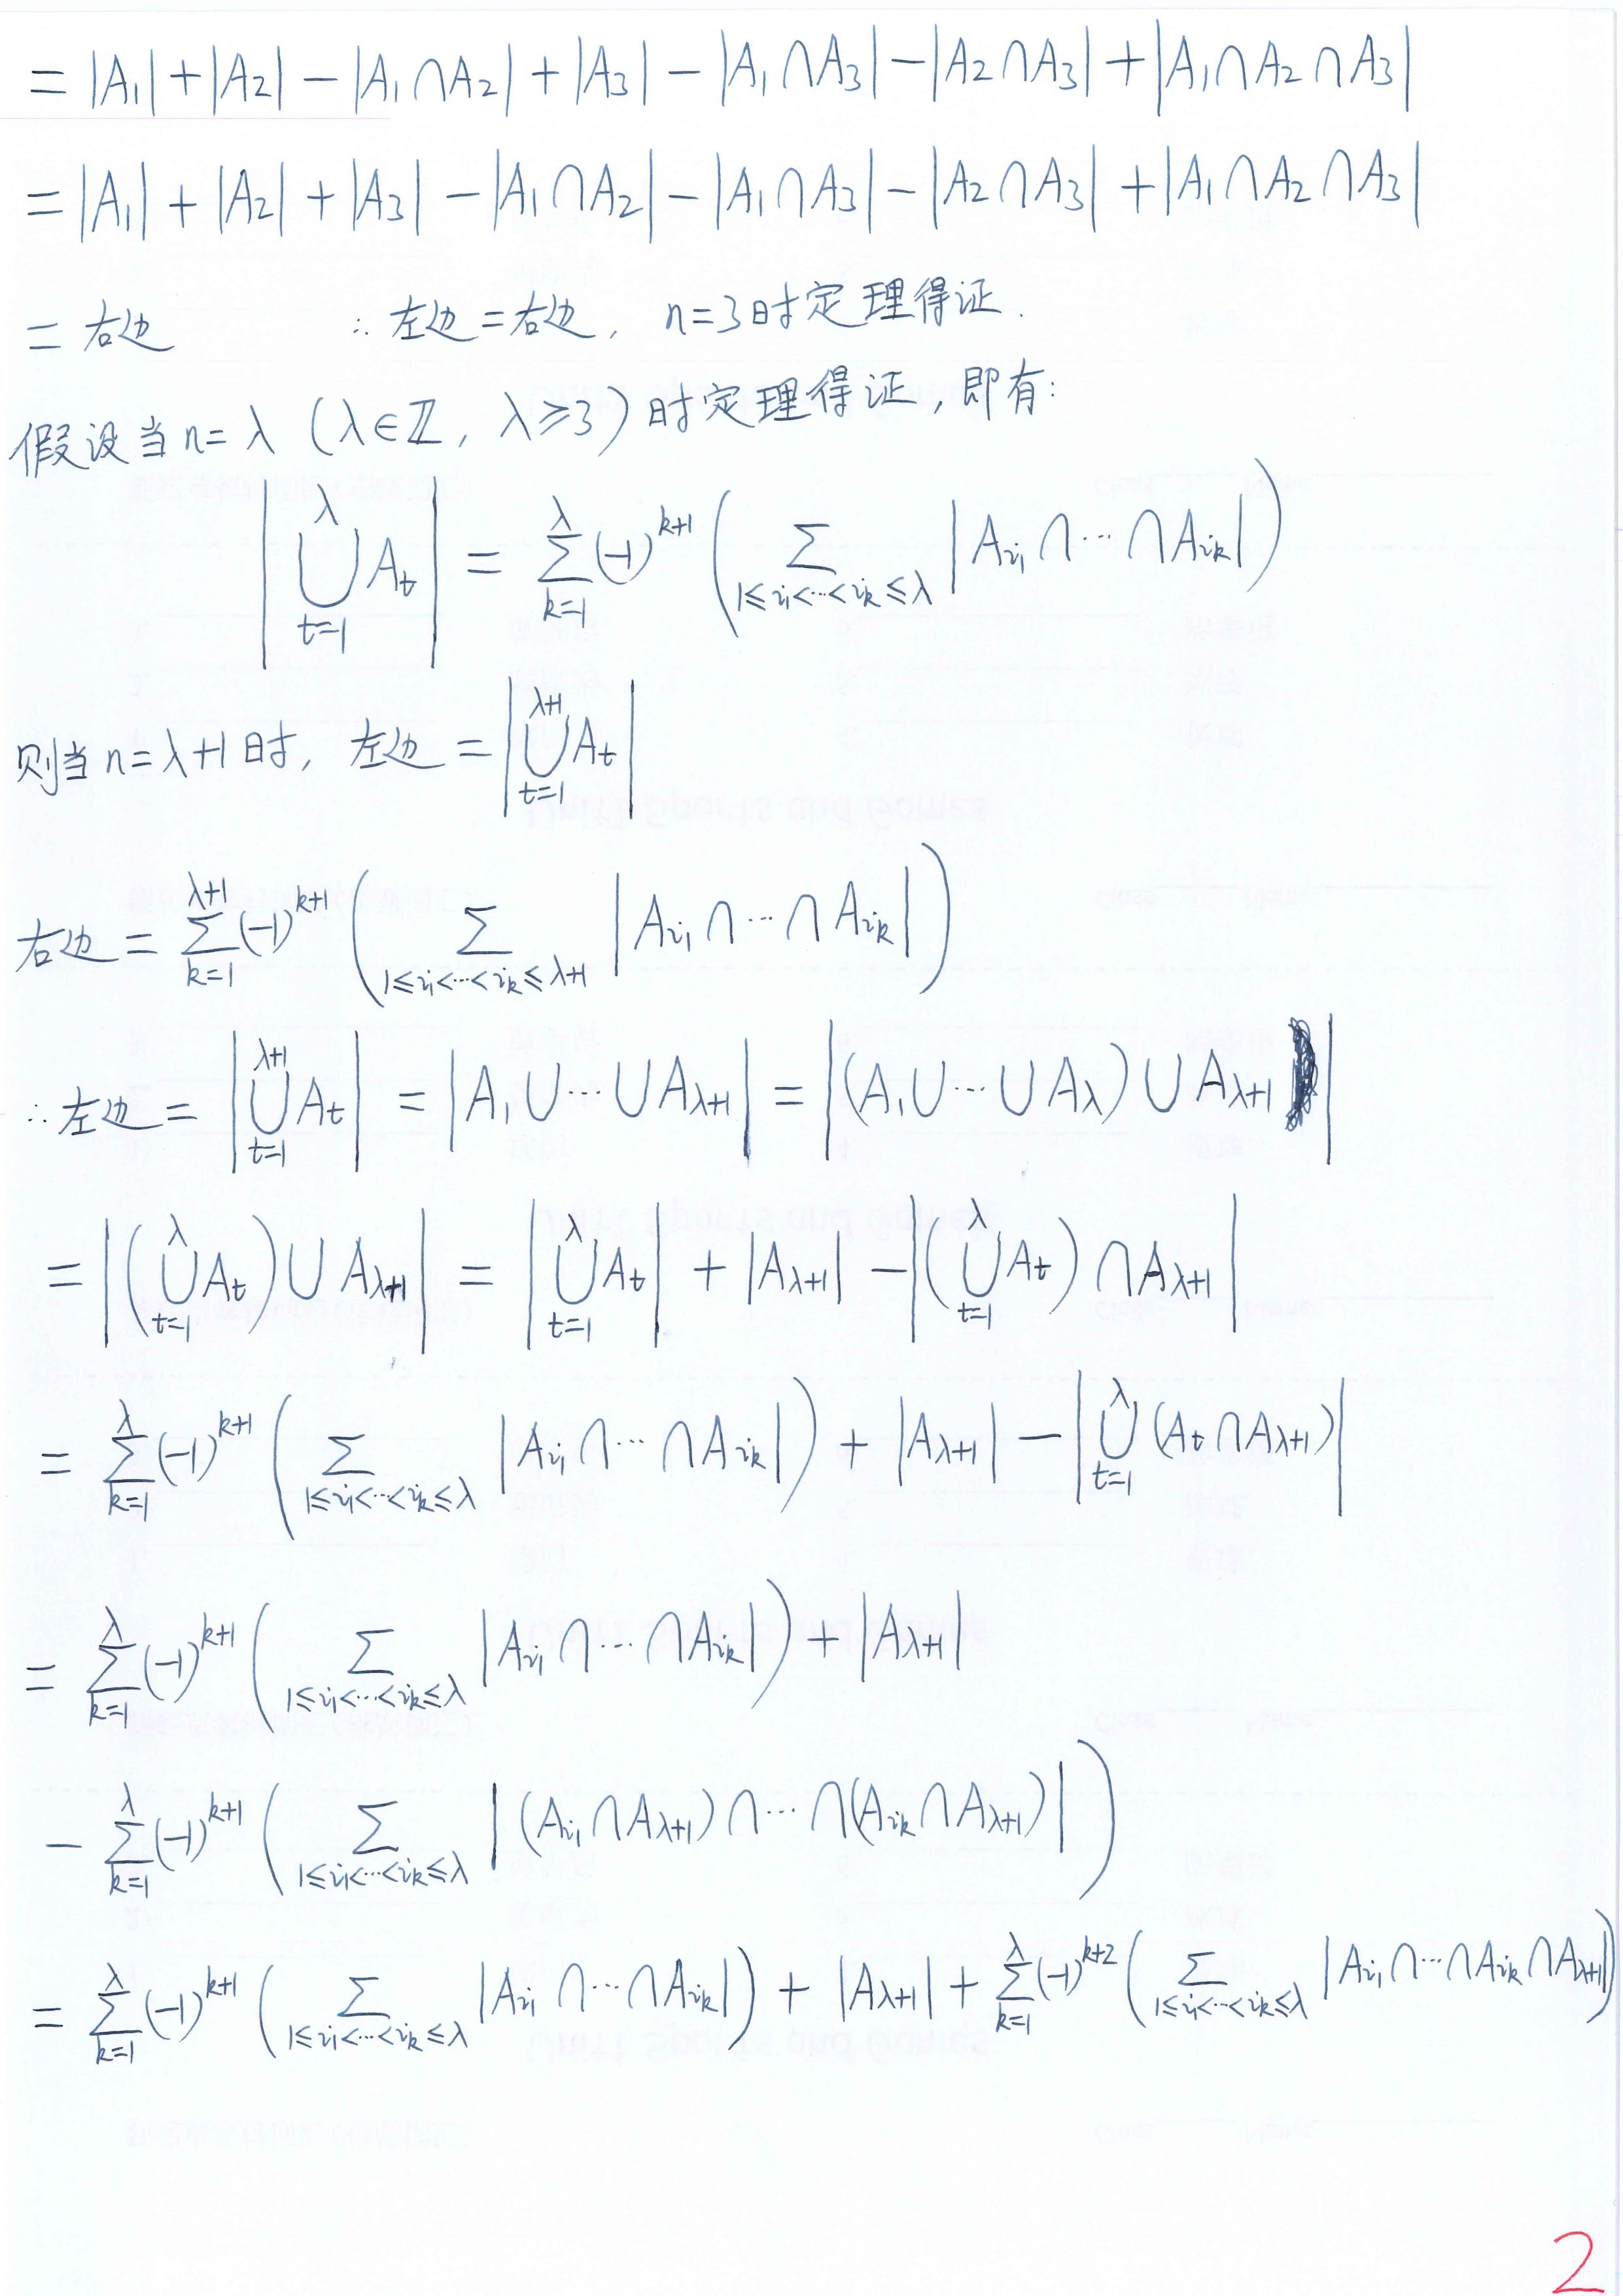 = |A₁| + |A₂| − |A₁ ∩ A₂| + |A₃| − |A₁ ∩ A₃| − |A₂ ∩ A₃| + |A₁ ∩ A₂ ∩ A₃|
= |A₁| + |A₂| + |A₃| − |A₁ ∩ A₂| − |A₁ ∩ A₃| − |A₂ ∩ A₃| + |A₁ ∩ A₂ ∩ A₃|
= 右边 ∴ 左边 = 右边, n=3时定理得证.
假设当 n=λ (λ∈ℤ, λ≥3) 时定理得证,即有:
|\bigcup_{t=1}^{λ} A_t| = \sum_{k=1}^{λ} (-1)^{k+1} (\sum_{1≤i_1<⋯<i_k≤λ} |A_{i_1} ∩ ⋯ ∩ A_{i_k}|)
则当 n=λ+1 时, 左边 = |\bigcup_{t=1}^{λ+1} A_t|
右边 = \sum_{k=1}^{λ+1} (-1)^{k+1} (\sum_{1≤i_1<⋯<i_k≤λ+1} |A_{i_1} ∩ ⋯ ∩ A_{i_k}|)
∴ 左边 = |\bigcup_{t=1}^{λ+1} A_t| = |A_1 ∪ ⋯ ∪ A_{λ+1}| = |(A_1 ∪ ⋯ ∪ A_λ) ∪ A_{λ+1}|
= |(\bigcup_{t=1}^{λ} A_t) ∪ A_{λ+1}| = |\bigcup_{t=1}^{λ} A_t| + |A_{λ+1}| − |(\bigcup_{t=1}^{λ} A_t) ∩ A_{λ+1}|
= \sum_{k=1}^{λ} (-1)^{k+1} (\sum_{1≤i_1<⋯<i_k≤λ} |A_{i_1} ∩ ⋯ ∩ A_{i_k}|) + |A_{λ+1}| − |\bigcup_{t=1}^{λ} (A_t ∩ A_{λ+1})|
= \sum_{k=1}^{λ} (-1)^{k+1} (\sum_{1≤i_1<⋯<i_k≤λ} |A_{i_1} ∩ ⋯ ∩ A_{i_k}|) + |A_{λ+1}|
− \sum_{k=1}^{λ} (-1)^{k+1} (\sum_{1≤i_1<⋯<i_k≤λ} |(A_{i_1} ∩ A_{λ+1}) ∩ ⋯ ∩ (A_{i_k} ∩ A_{λ+1})|)
= \sum_{k=1}^{λ} (-1)^{k+1} (\sum_{1≤i_1<⋯<i_k≤λ} |A_{i_1} ∩ ⋯ ∩ A_{i_k}|) + |A_{λ+1}| + \sum_{k=1}^{λ} (-1)^{k+2} (\sum_{1≤i_1<⋯<i_k≤λ} |A_{i_1} ∩ ⋯ ∩ A_{i_k} ∩ A_{λ+1}|)
2